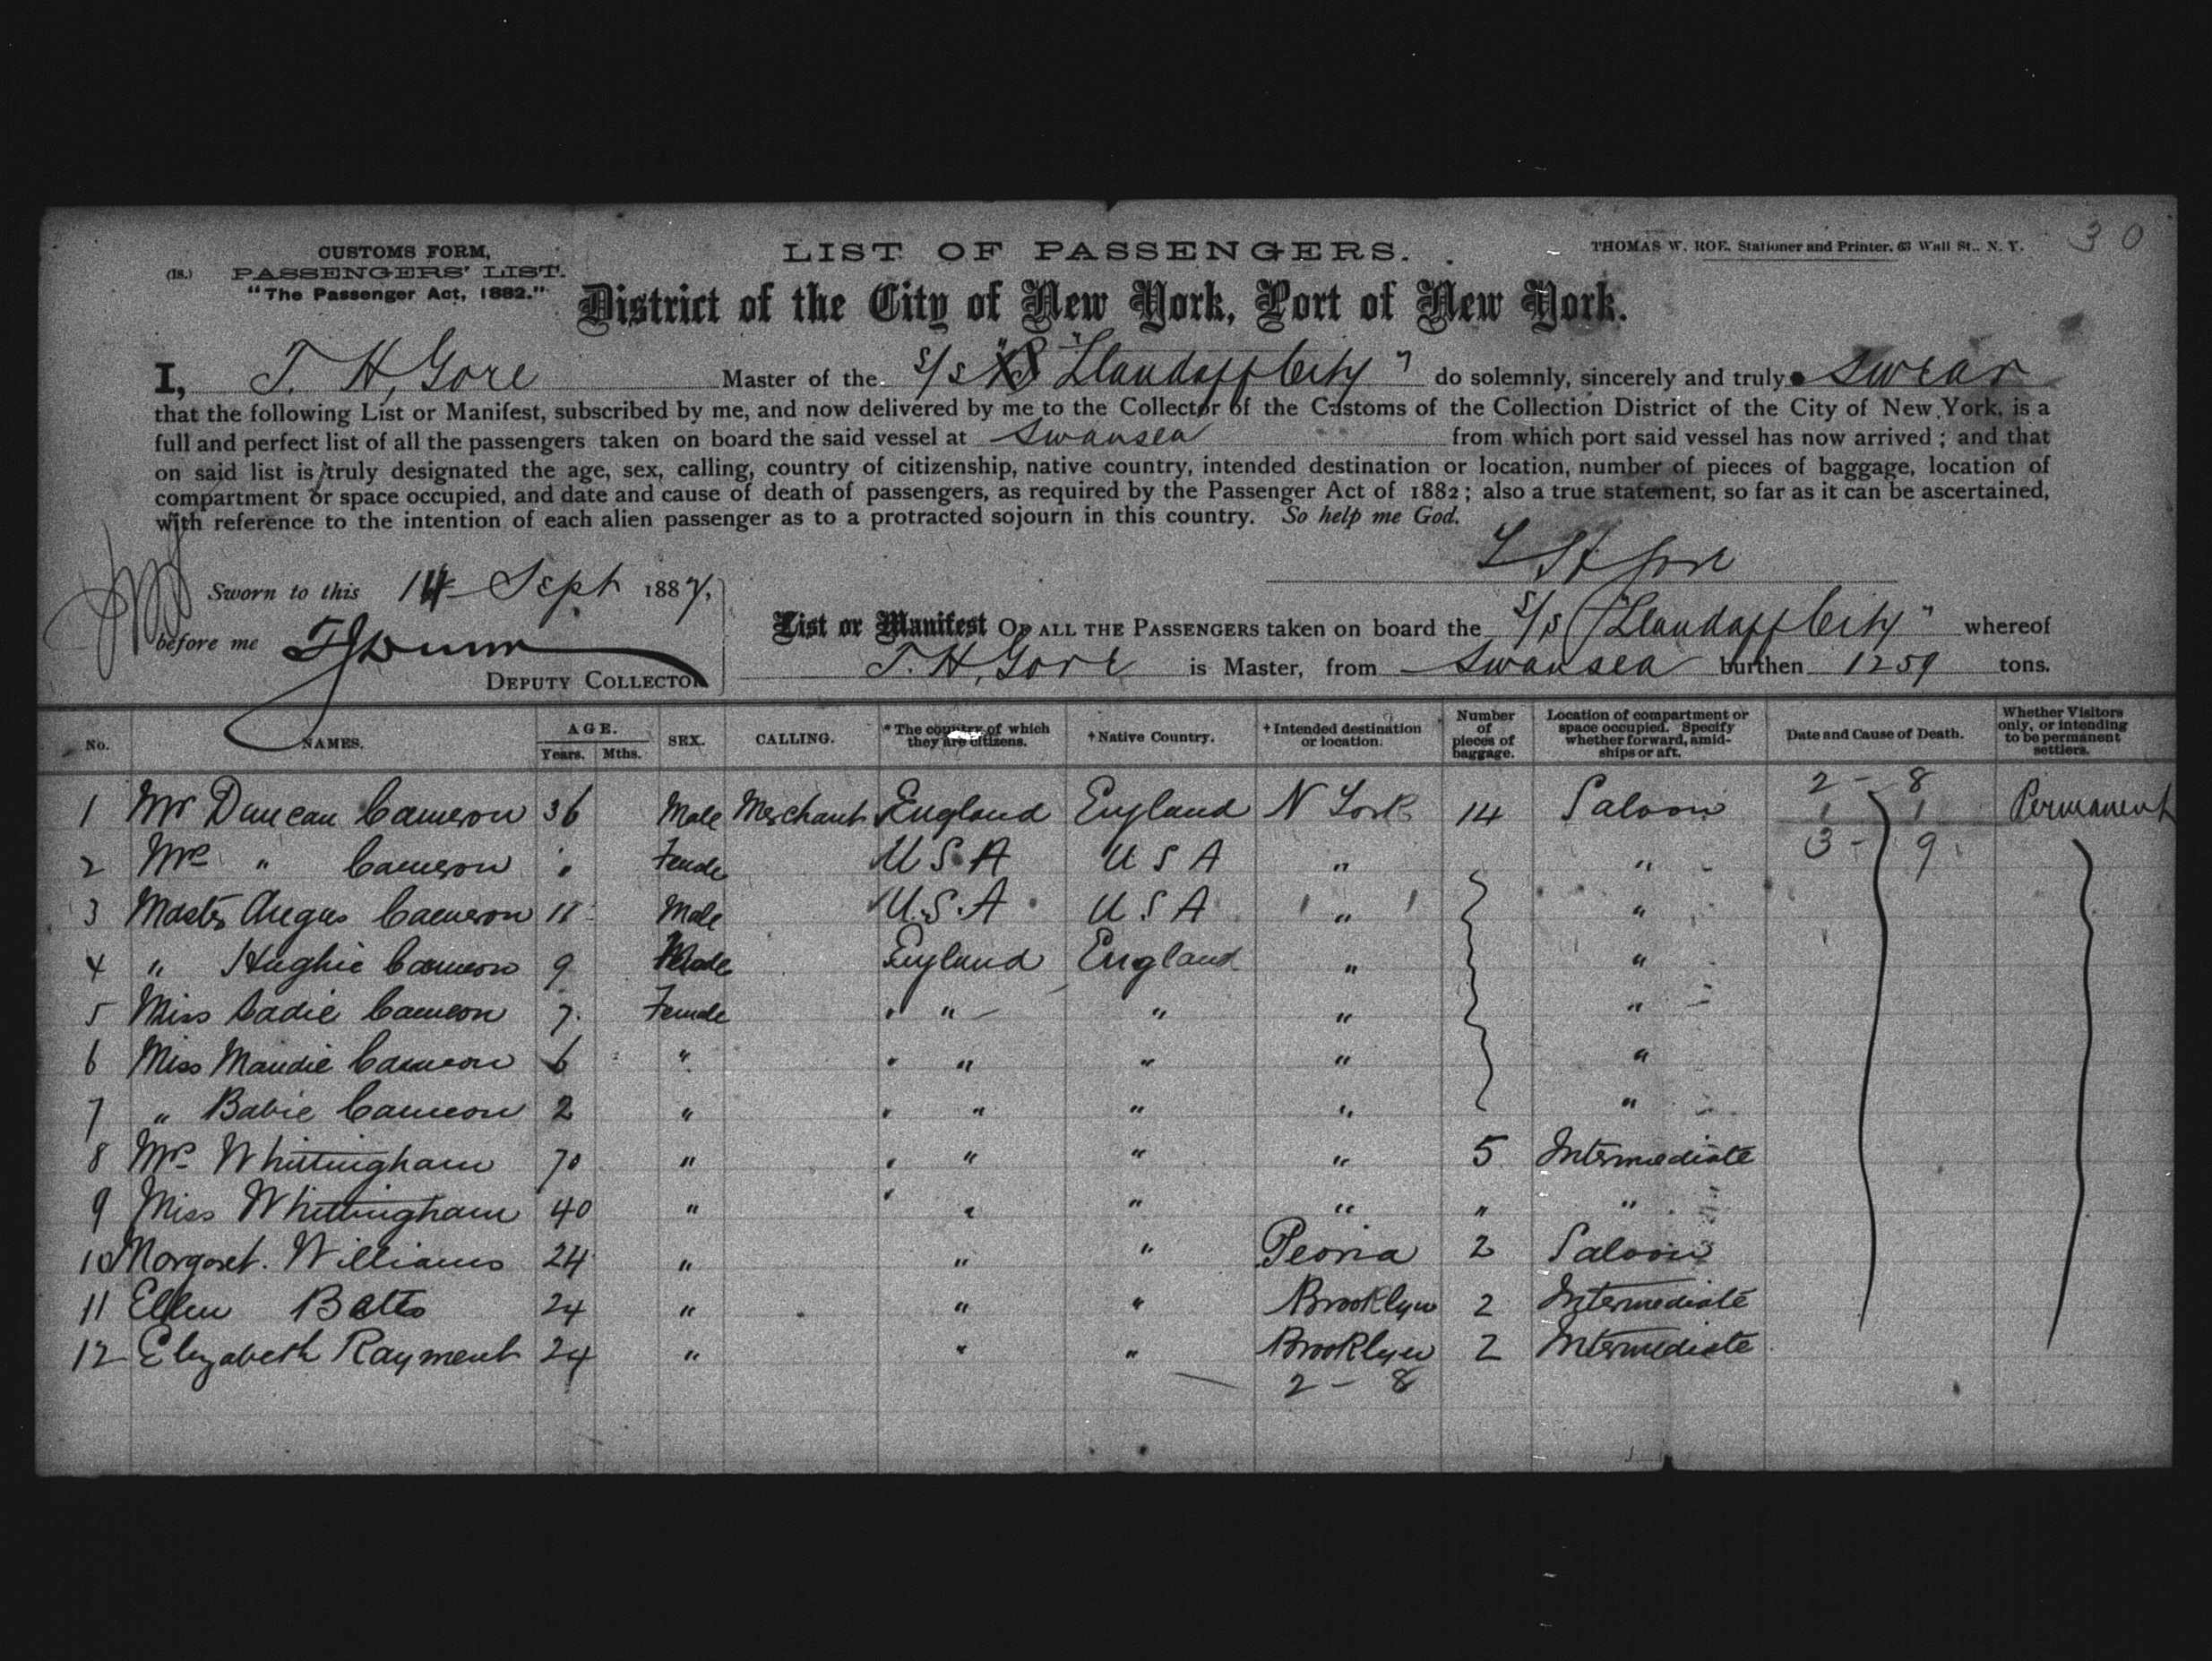 CUSTOMS FORM,
(18.) PASSENGERS' LIST.
"The Passenger Act, 1882."
LIST OF PASSENGERS.
THOMAS W. ROE, Stationer and Printer, 63 Wall St., N. Y.
30
District of the City of New York, Port of New York.
I, T. H. Gore Master of the s/s "Llandaff City" do solemnly, sincerely and truly swear
that the following List or Manifest, subscribed by me, and now delivered by me to the Collector of the Customs of the Collection District of the City of New York, is a
full and perfect list of all the passengers taken on board the said vessel at Swansea from which port said vessel has now arrived; and that
on said list is truly designated the age, sex, calling, country of citizenship, native country, intended destination or location, number of pieces of baggage, location of
compartment or space occupied, and date and cause of death of passengers, as required by the Passenger Act of 1882; also a true statement, so far as it can be ascertained,
with reference to the intention of each alien passenger as to a protracted sojourn in this country. So help me God.
T H Gore
Sworn to this 14 Sept 1887,
before me
DEPUTY COLLECTOR
List or Manifest OF ALL THE PASSENGERS taken on board the s/s "Llandaff City" whereof
T. H. Gore is Master, from Swansea burthen 1259 tons.
No. NAMES. AGE. Years. Mths. SEX. CALLING. * The country of which they are citizens. † Native Country. † Intended destination or location. Number of pieces of baggage. Location of compartment or space occupied. Specify whether forward, amidships or aft. Date and Cause of Death. Whether Visitors only, or intending to be permanent settlers.
2 - 8
1 Mr Duncan Cameron 36 Male Merchant England England N York 14 Saloon 1 1 Permanent
3 - 9
2 Mrs " Cameron " Female U S A U S A " "
3 Master Angus Cameron 11 Male U.S.A U S A " "
4 " Hughie Cameron 9 Male England England " "
5 Miss Sadie Cameron 7 Female " " " "
6 Miss Maudie Cameron 6 " " " " "
7 " Babie Cameron 2 " " " " "
8 Mrs Whittingham 70 " " " " 5 Intermediate
9 Miss Whittingham 40 " " " " " "
10 Margaret Williams 24 " " " Peoria 2 Saloon
11 Ellen Batts 24 " " " Brooklyn 2 Intermediate
12 Elizabeth Rayment 24 " " " Brooklyn 2 Intermediate
2 - 8